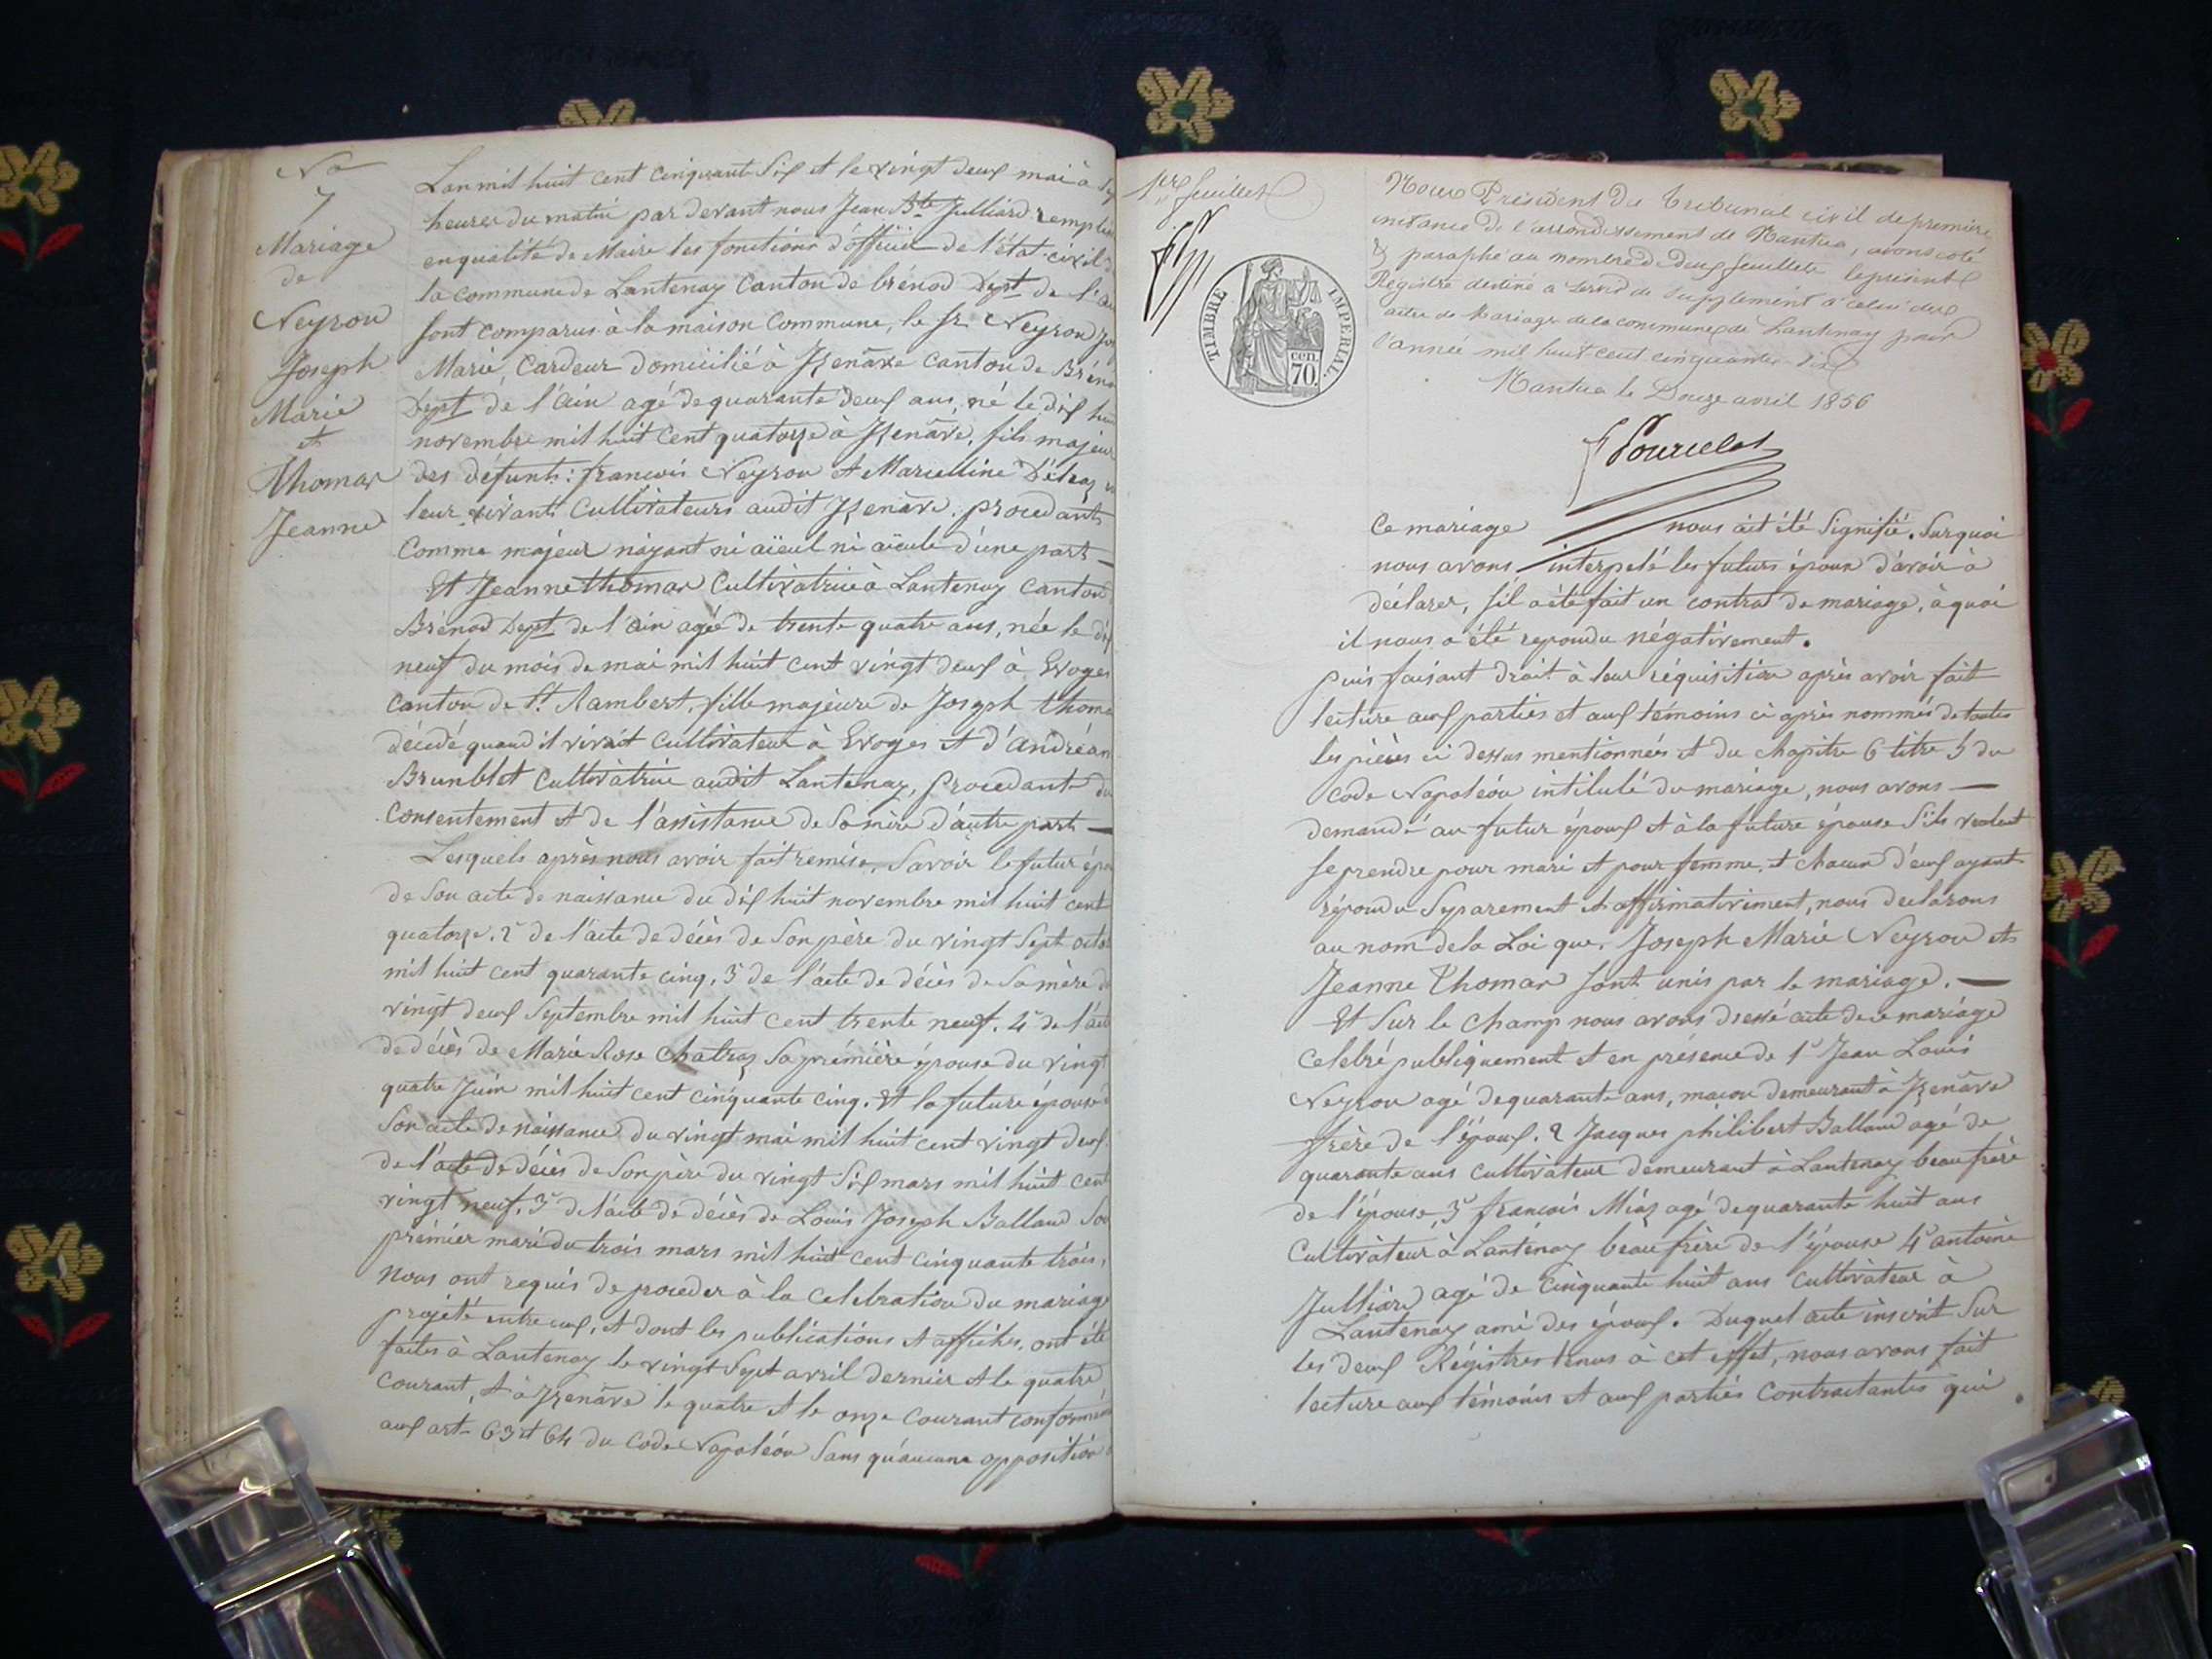 No
7
Mariage
de
Neyron
Joseph
Marie
et
Thomas
Jeanne
L'an mil huit cent cinquant Six et le vingt deux mai à
heures du matin par devant nous Jean Bte Julliard
en qualité de Maire les fonctions d'officier de l'état-civil
la commune de Lantenay Canton de brénod Dept de l'
sont comparus à la maison Commune, le sr Neyron
Marie, Cardeur domicilié à Izenâve canton de
Dept de l'ain agé de quarante deux ans, né le dix
novembre mil huit Cent quatorze à Izenâve, fils majeur
des défunts: françois Neyron et Marceline
leur vivants Cultivateurs audit Izenâve. procédant
Comme majeur n'ayant ni aïeul ni aïeule d'une part —
Et Jeanne thomas Cultivatrice à Lantenay Canton
Brénod Dept de l'ain agée de trente quatre ans, née le
neuf du mois de mai mil huit cent vingt deux à Evoges
canton de St Rambert, fille majeure de Joseph
décédé quand il vivait Cultivateur à Evoges et d'
Brunblet Cultivatrice audit Lantenay, Procédant du
Consentement et de l'assistance de Sa mère d'autre part —
Lesquels après nous avoir fait remise, Savoir le futur
de Son acte de naissance du dix huit novembre mil huit cent
quatorze. 2° de l'acte de décès de Son père du vingt Sept
mil huit cent quarante cinq, 3° de l'acte de décès de Sa mère
vingt deux Septembre mil huit cent trente neuf. 4° de l'
de décès de Marie Rose Chatraz Sa prémière épouse du vingt
quatre Juin mil huit cent cinquante cinq. Et la future épouse
Son acte de naissance du vingt mai mil huit cent vingt deux
de l'acte de décès de Son père du vingt Six mars mil huit cent
vingt neuf, 3° de l'acte de décès de Louis Joseph Balland
prémier mari du trois mars mil huit cent cinquante trois,
Nous ont requis de proceder à la celebration du mariage
projété entre eux, et dont les publications et affiches, ont été
faites à Lantenay le vingt Sept avril dernier et le quatre
courant, et à Izenâve le quatre et le onze courant
aux art. 63 et 64 du Code Napoléon Sans qu'aucune opposition
1er feuillet
TIMBRE IMPERIAL.
cen.
70.
Nous Président du tribunal civil de première
instance de l'arrondissement de Nantua, avons coté
& paraphé au nombre de deux feuillets le présent
Registre destiné à servir de supplément à celui des
actes de Mariage de la commune de Lantenay pour
l'année mil huit cent cinquante six
Nantua le Douze avril 1856
Ce mariage nous ait été Signifié. Surquoi
nous avons interpelé les futurs époux d'avoir à
déclarer, s'il a été fait un contrat de mariage, à quoi
il nous a été repondu négativement.
puis faisant droit à leur réquisition après avoir fait
lecture aux parties et aux témoins ci après nommés de toutes
les pièces ci dessus mentionnées et du chapitre 6 titre 5 du
code Napoléon intitulé du mariage, nous avons —
demandé au futur époux et à la future épouse S'ils veulent
se prendre pour mari et pour femme, et chacun d'eux ayant
répondu Séparement et affirmativement, nous declarons
au nom de la Loi que, Joseph Marie Neyron et
Jeanne Thomas sont unis par le mariage. —
Et Sur le champ nous avons dressé acte de ce mariage
celebré publiquement et en présence de 1° Jean Louis
Neyron agé de quarante ans, maçon demeurant à Izenâve
frère de l'époux. 2 Jacques philibert Balland agé de
quarante ans cultivateur demeurant à Lantenay beaufrère
de l'épouse, 3° françois Miaz agé de quarante huit ans
Cultivateur à Lantenay beau frère de l'épouse 4° antoine
Julliard agé de cinquante huit ans cultivateur à
Lantenay ami des époux. Duquel acte inscrit Sur
les deux Régistres tenus à cet effet, nous avons fait
lecture aux témoins et aux parties Contractantes qui